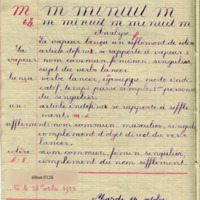 m m minuit m
m minuit m menuit m
Analyse
La vapeur lança un sifflement de colère
La article défini, se rapporte à vapeur
vapeur nom commun, féminin, singulier,
sujet du verbe lancer
lança verbe lancer, groupe, mode indi-
catif, temps passé simple, personne
du singulier
un article indéfini se rapporte à siffle-
ment m. s.
sifflement nom commun, masculin, singulier
complément d'objet direct du verbe
lancer.
colère nom commun, fém., singulier,
complément du nom sifflement.
Mardi